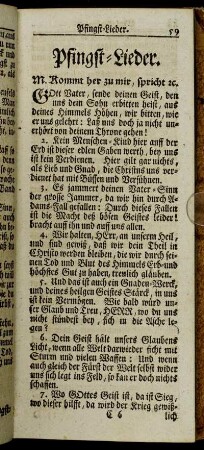 Pfingst-Lieder. 59
Pfingst-Lieder.
M. Kommt her zu mir, spricht ꝛc.
GOtt Vater, sende deinen Geist, den
uns dein Sohn erbitten heist, aus
deines Himmels Höhen, wir bitten, wie
er uns gelehrt: Laß uns doch ja nicht un-
erhört von deinem Throne gehen!
2. Kein Menschen-Kind hier auf der
Erd ist dieser edlen Gaben werth, bey uns
ist kein Verdienen. Hier gilt gar nichts,
als Lieb und Gnad, die Christus uns ver-
dienet hat mit Büssen und Versühnen.
3. Es jammert deinen Vater-Sinn
der grosse Jammer, da wir hin durch A-
dams-Fall gefallen: Durch dieses Fallen
ist die Macht deß bösen Geistes leider!
bracht auf ihn und auf uns allen.
4. Wir halten, HErr, an unserm Heil,
und sind gewiß, daß wir dein Theil in
Christo werden bleiben, die wir durch sei-
nen Tod und Blut des Himmels Erb- und
höchstes Gut zu haben, treulich gläuben.
5. Und das ist auch ein Gnaden-Werck,
und deines heilgen Geistes Stärck, in uns
ist kein Vermögen. Wie bald würd un-
ser Glaub und Treu, HERR, wo du uns
nicht stündest bey, sich in die Asche le-
gen?
6. Dein Geist hält unsers Glaubens
Licht, wenn alle Welt darwieder ficht mit
Sturm und vielen Waffen: Und wenn
auch gleich der Fürst der Welt selbst wider
uns sich legt ins Feld, so kan er doch nichts
schaffen.
7. Wo GOttes Geist ist, da ist Sieg,
wo dieser hilfft, da wird der Krieg gewiß-
C 6 lich